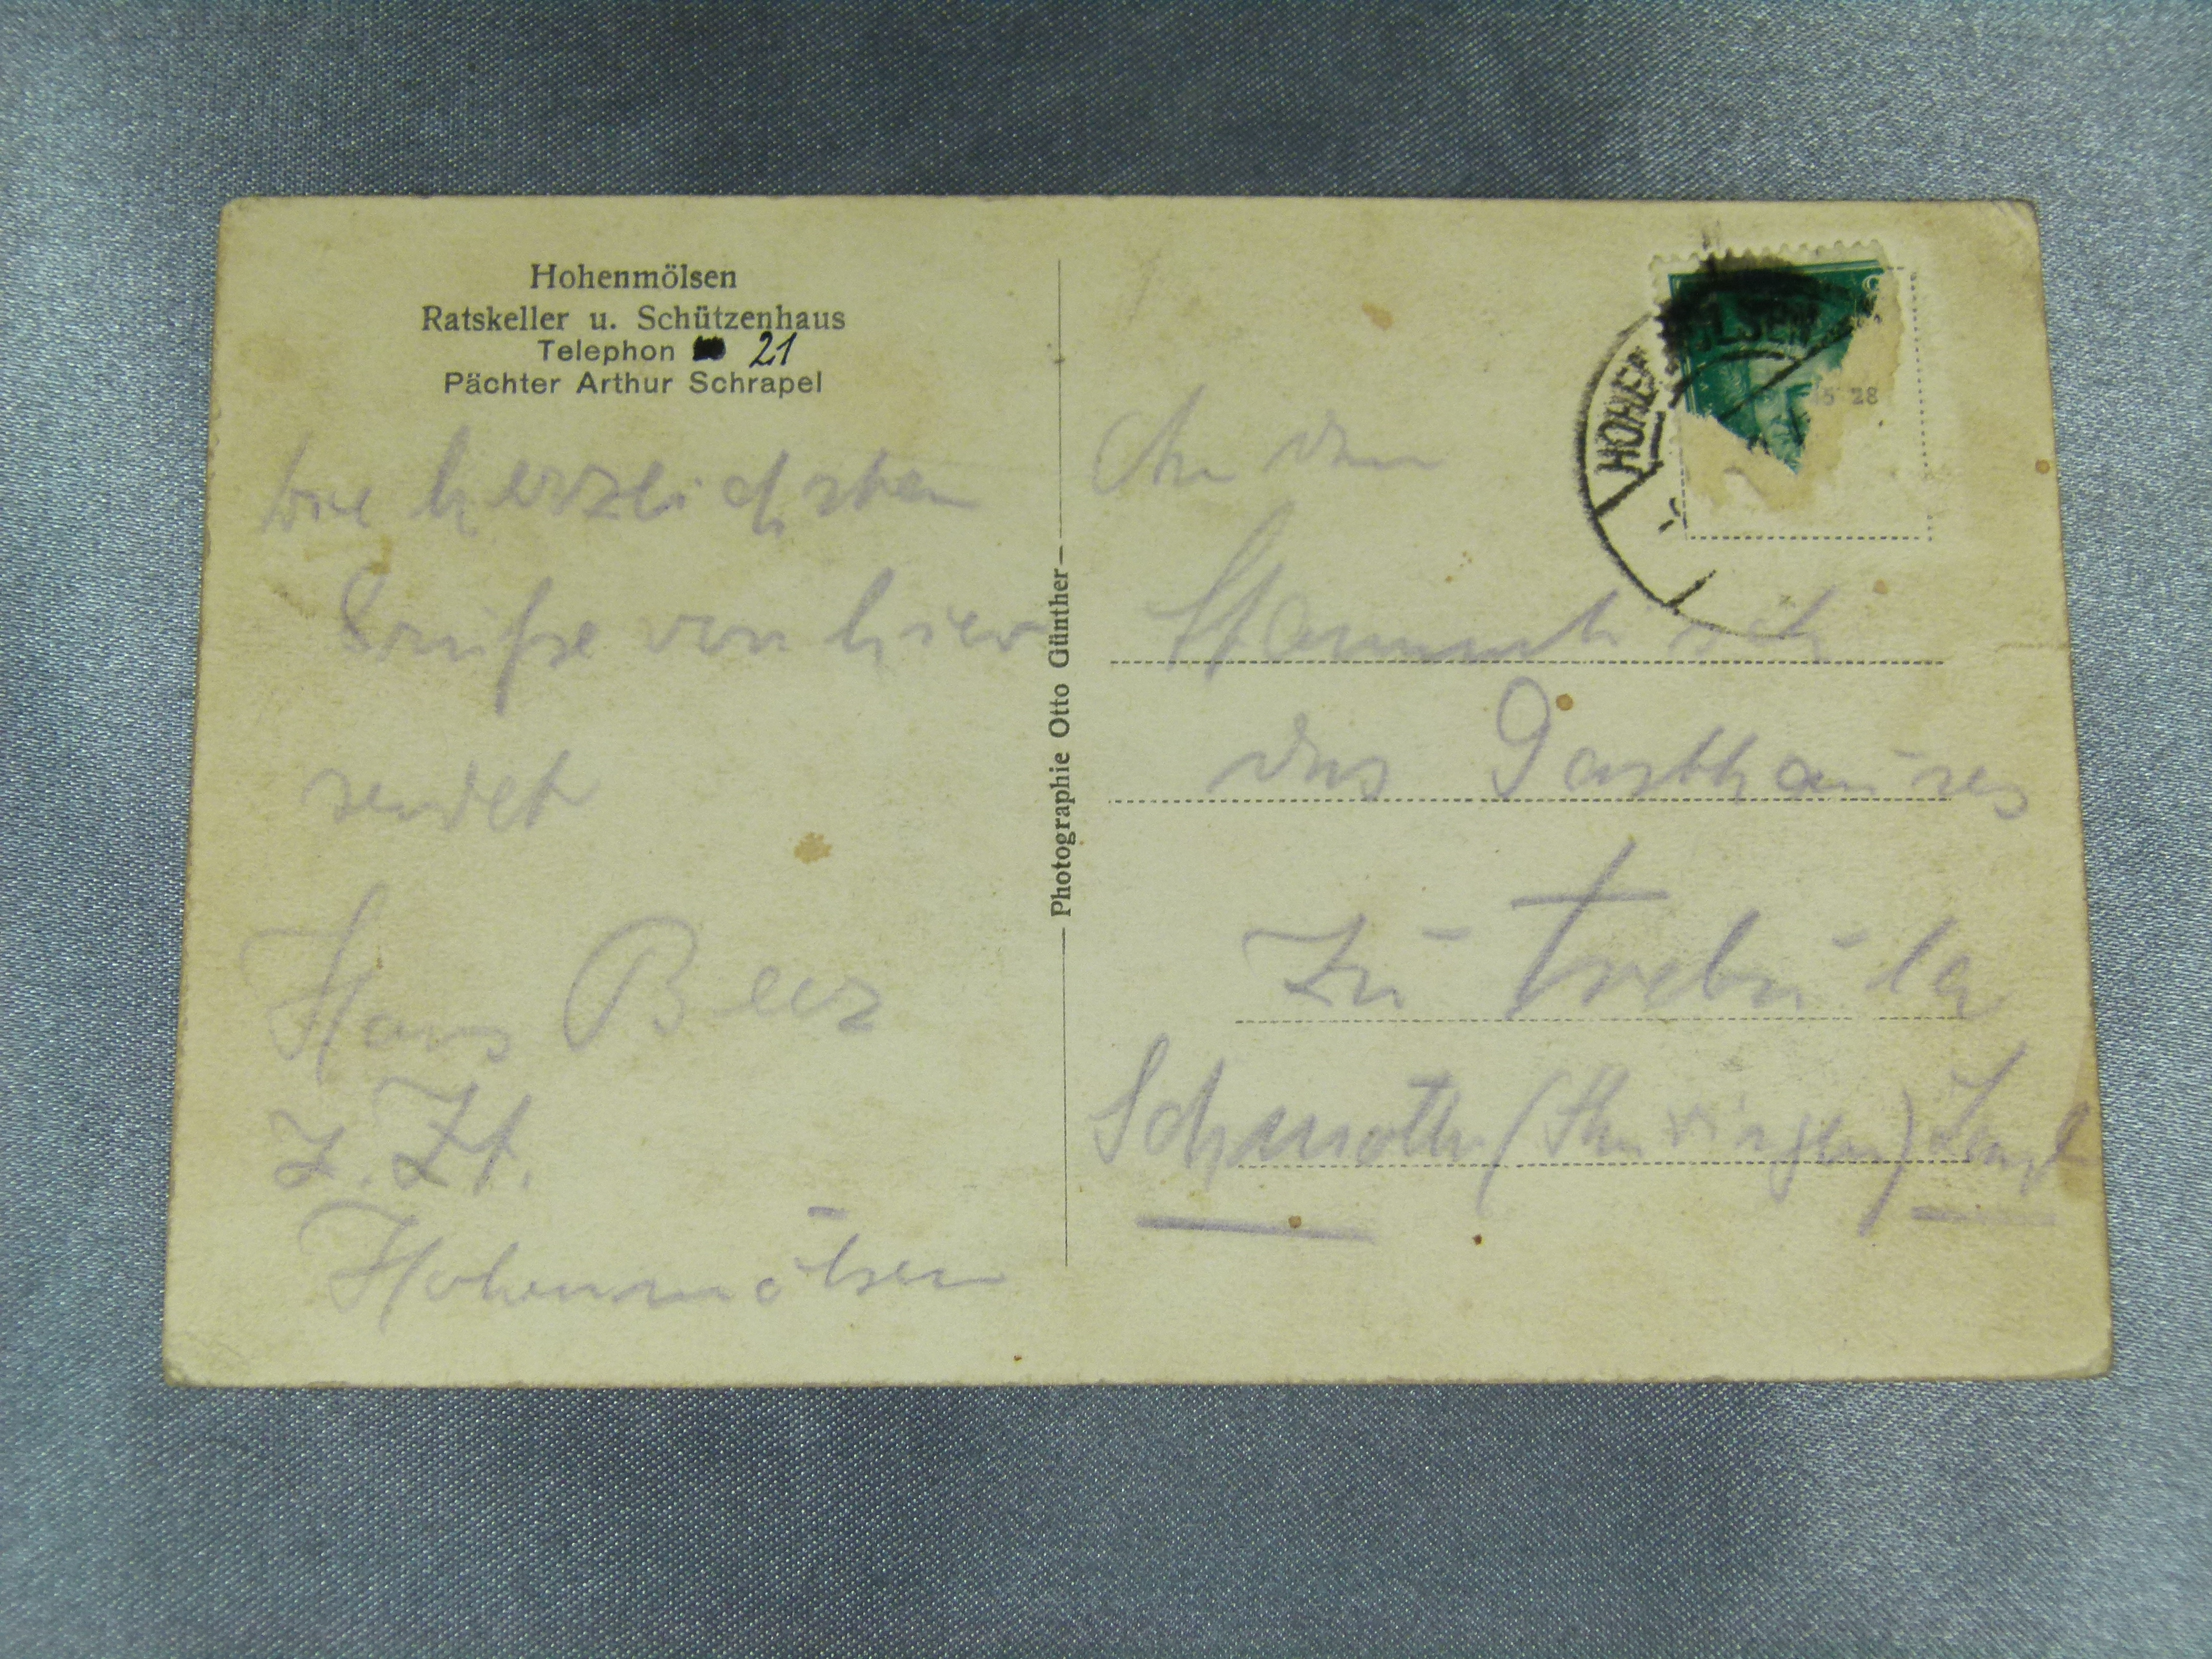 Hohenmölsen
Ratskeller u. Schützenhaus
Telephon 21
Pächter Arthur Schrapel
Die herzlichsten
Grüße von hier
sendet
Hans Beer
z. Zt.
Hohenmölsen
Photographie Otto Günther
HOHENMÖLSEN
15 28
An den
Stammtisch
des Gasthauses
zu Trebula
(Thüringen) Land